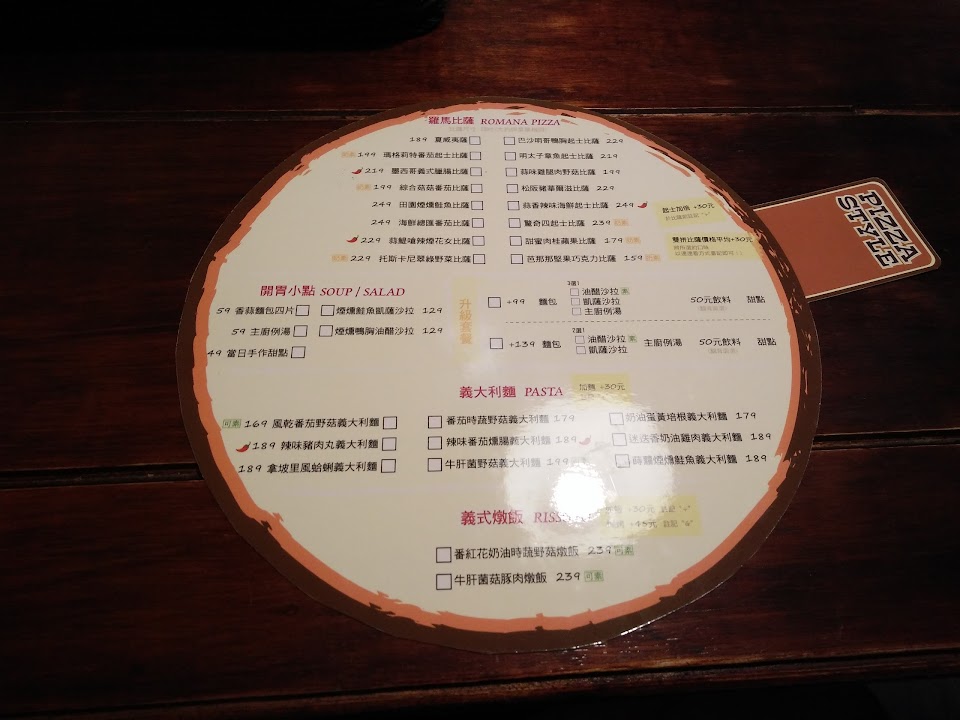 羅馬比薩 ROMANA PIZZA
189 夏威夷薩
巴沙明哥鴨胸起士比薩 229
199 瑪格莉特番茄起士比薩
明太子章魚起士比薩 219
219 墨西哥義式臘腸比薩
蒜味雞腿肉野菇比薩 199
199 綜合菇菇番茄比薩
松阪豬華爾滋比薩 229
249 田園煙燻鮭魚比薩
蒜香辣味海鮮起士比薩 249
起士加倍 +30元
249 海鮮總匯番茄比薩
驚奇四起士比薩 239
229 蒜鯷嗆辣煙花女比薩
甜蜜肉桂蘋果比薩 179
雙拼比薩價格平均+30元
229 托斯卡尼翠綠野菜比薩
芭那那堅果巧克力比薩 159
開胃小點 SOUP / SALAD
59 香蒜麵包四片
煙燻鮭魚凱薩沙拉 129
59 主廚例湯
煙燻鴨胸油醋沙拉 129
49 當日手作甜點
升級套餐
3選1
+99 麵包
油醋沙拉 素
凱薩沙拉
主廚例湯
50元飲料 甜點
2選1
+139 麵包
油醋沙拉 素
凱薩沙拉
主廚例湯 50元飲料 甜點
義大利麵 PASTA
加麵 +30元
可素 169 風乾番茄野菇義大利麵
番茄時蔬野菇義大利麵 179
奶油蛋黃培根義大利麵 179
189 辣味豬肉丸義大利麵
辣味番茄燻腸義大利麵 189
迷迭香奶油雞肉義大利麵 189
189 拿坡里風蛤蜊義大利麵
牛肝菌野菇義大利麵 199
蒔蘿煙燻鮭魚義大利麵 189
義式燉飯
+30元
+45元
番紅花奶油時蔬野菇燉飯 239 可素
牛肝菌菇豚肉燉飯 239 可素
STYLE
PIZZA